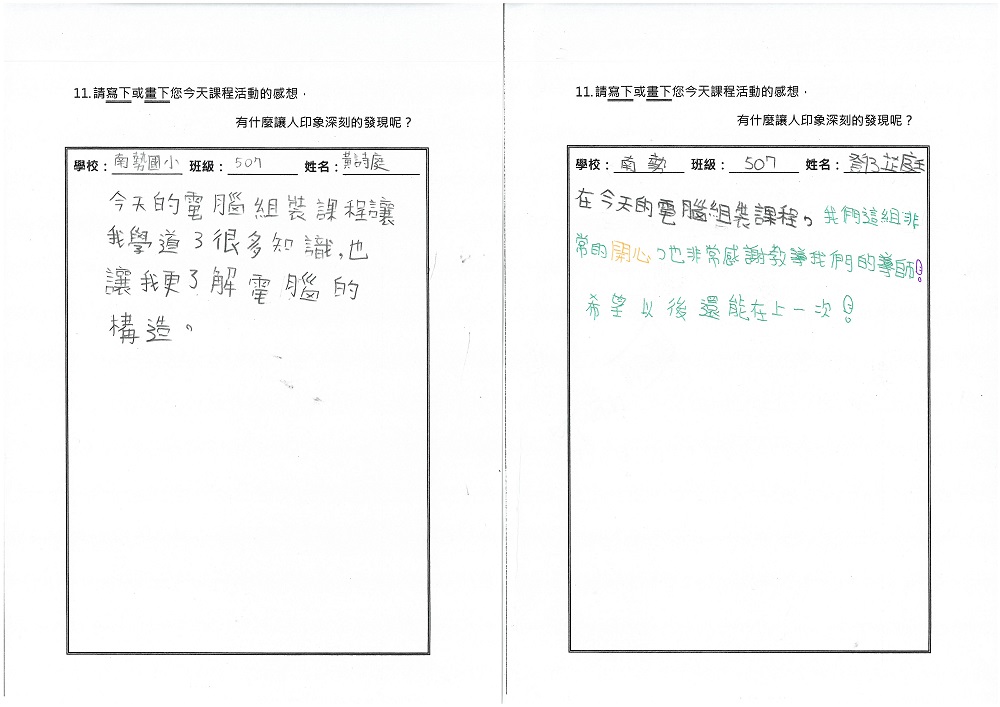 11.請寫下或畫下您今天課程活動的感想，
有什麼讓人印象深刻的發現呢？
學校：南勢國小 班級：507 姓名：黃詩庭
今天的電腦組裝課程讓
我學道了很多知識,也
讓我更了解電腦的
構造。
11.請寫下或畫下您今天課程活動的感想，
有什麼讓人印象深刻的發現呢？
學校：南勢 班級：507 姓名：
在今天的電腦組裝課程，我們這組非
常的開心，也非常感謝教導我們的導師!
希望以後還能在上一次!